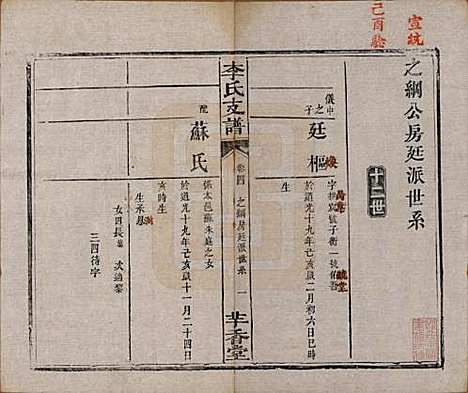 宣統
己酉驗
之綱公房廷派世系
十二世
儀中
之
子
廷樞
字 號子衡一號佰吾
於道光十九年己亥歲二月初六日巳時
生
配
蘇氏
係太邑蘇朱庭之女
於道光十九年己亥歲十一月二十四日
生承恩
女四長 次適黎
三四待字
李氏支譜
卷四
之綱房廷派世系
一
芉香堂